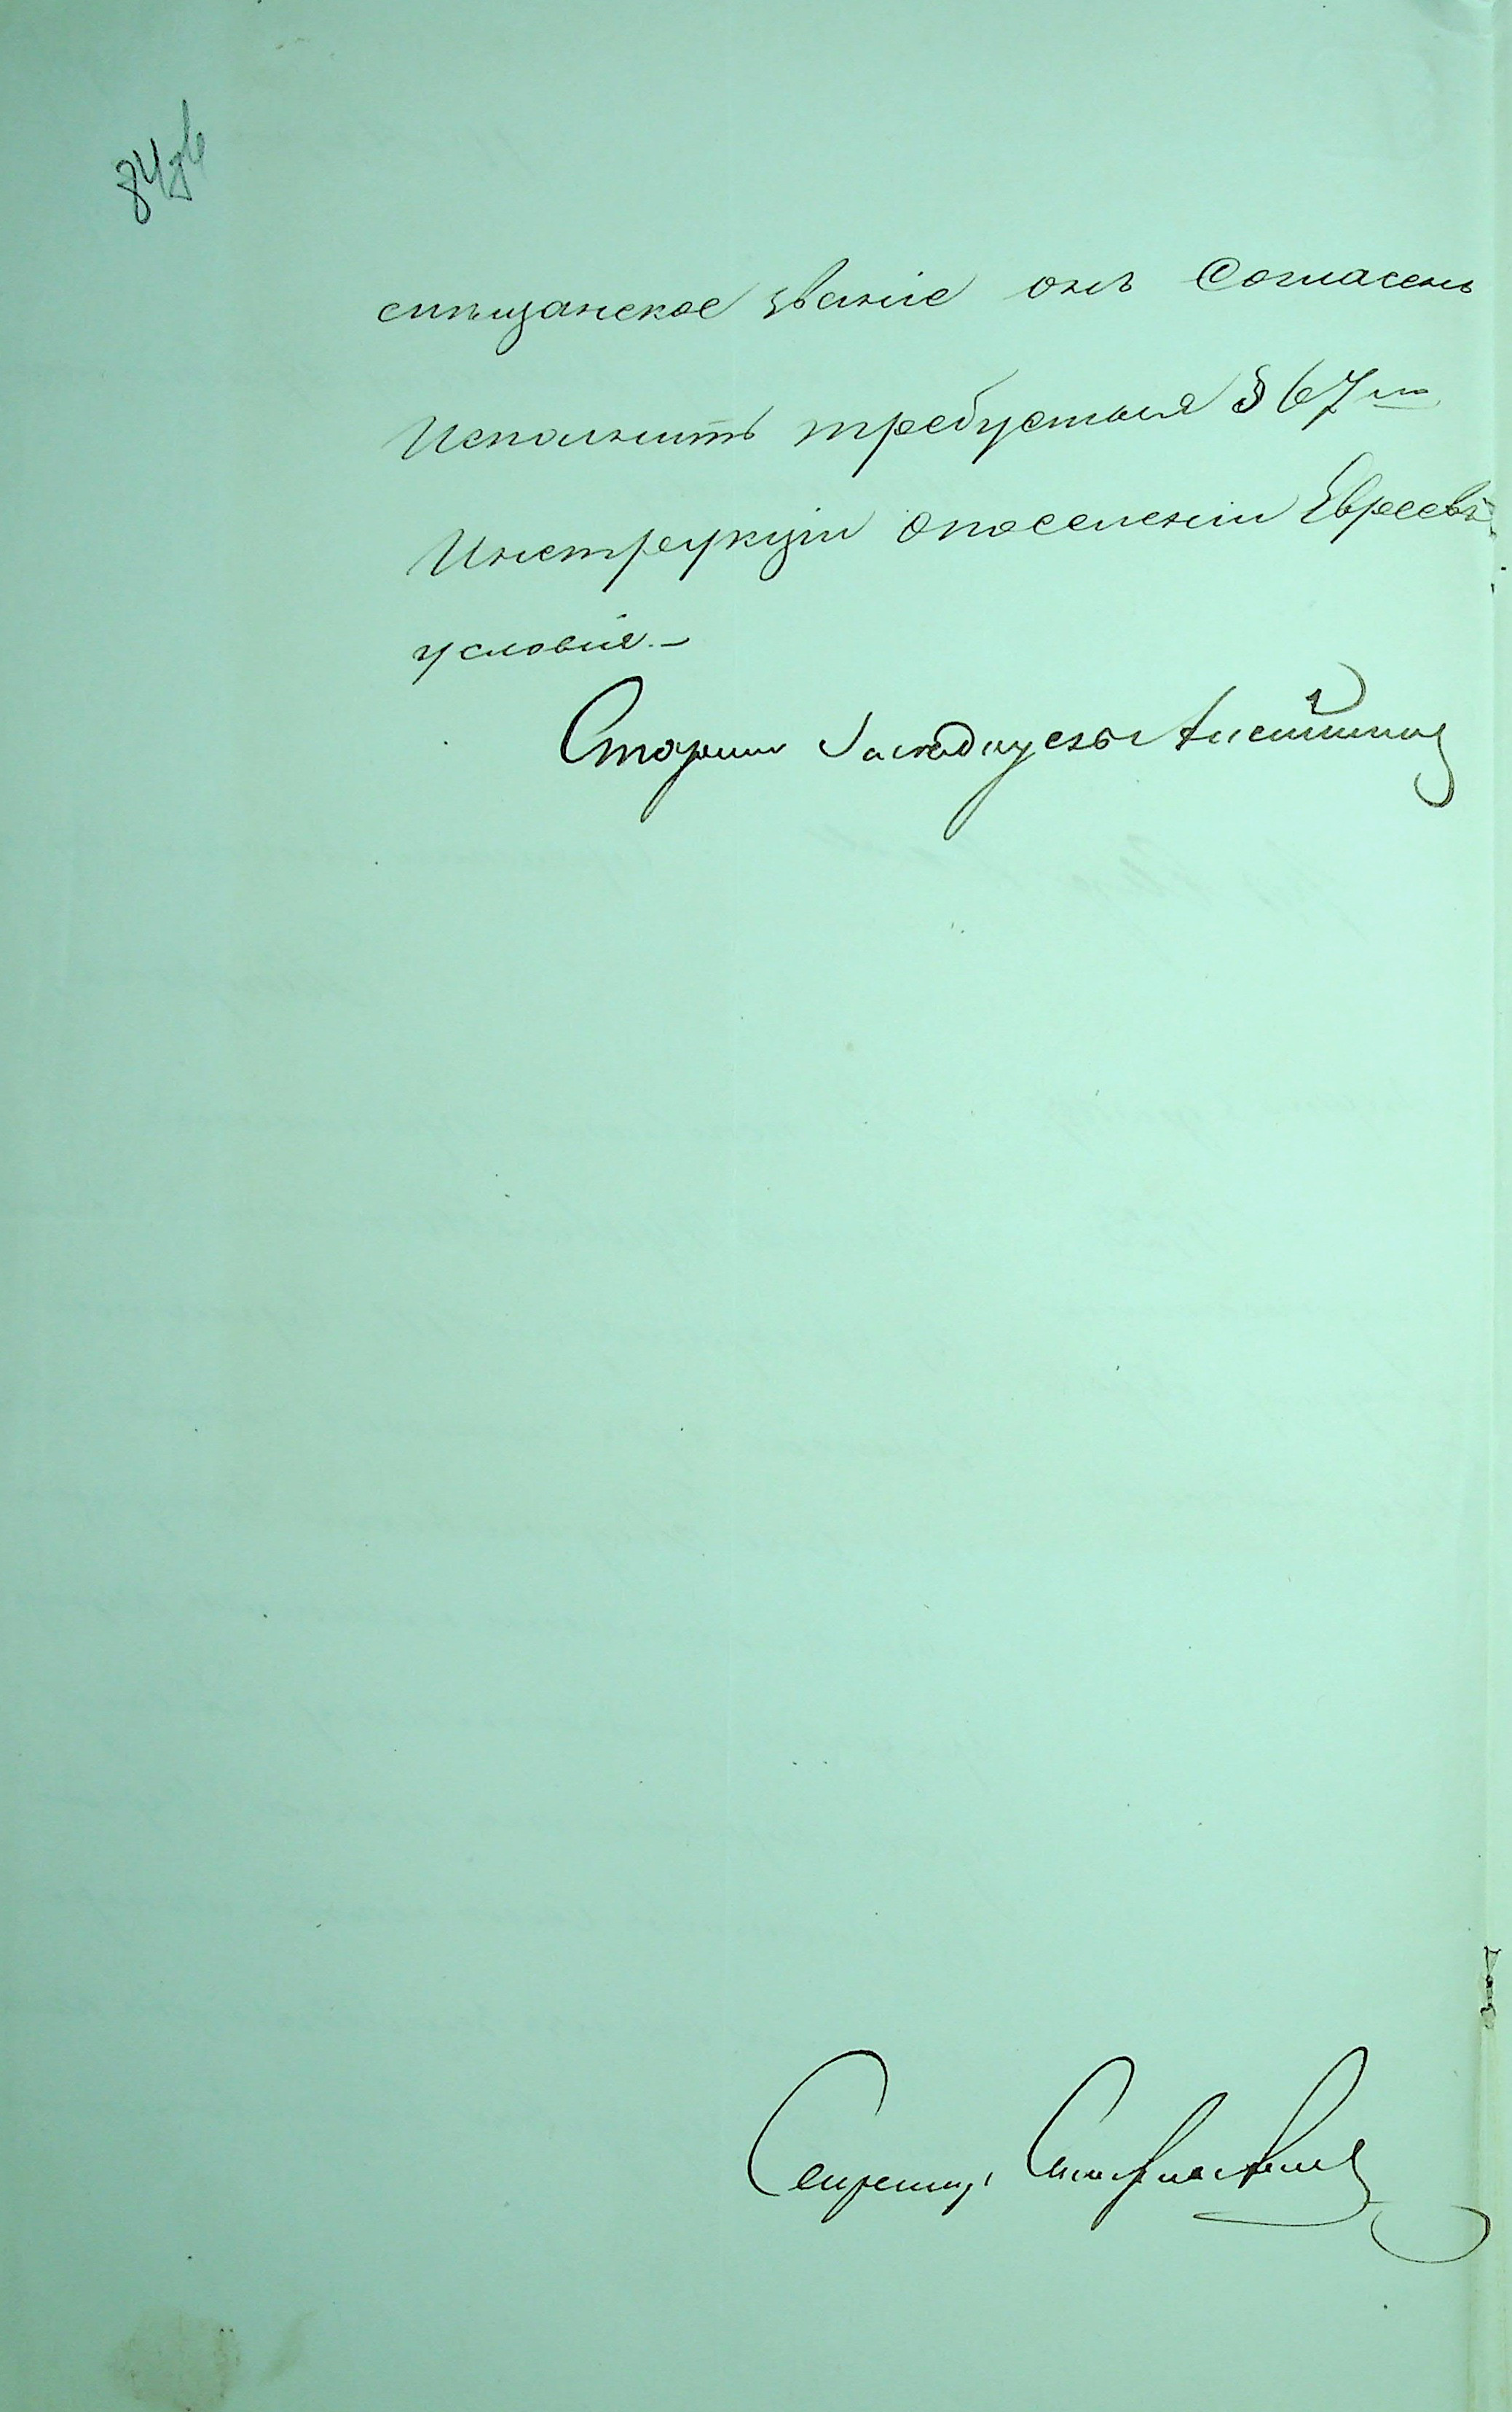 84об
смѣщанское званіе онъ Согласенъ
Исполнить требуемыя § 67мъ
Инструкціи опоселеніи Евреевъ
условія.–
Старшій
Секретарь